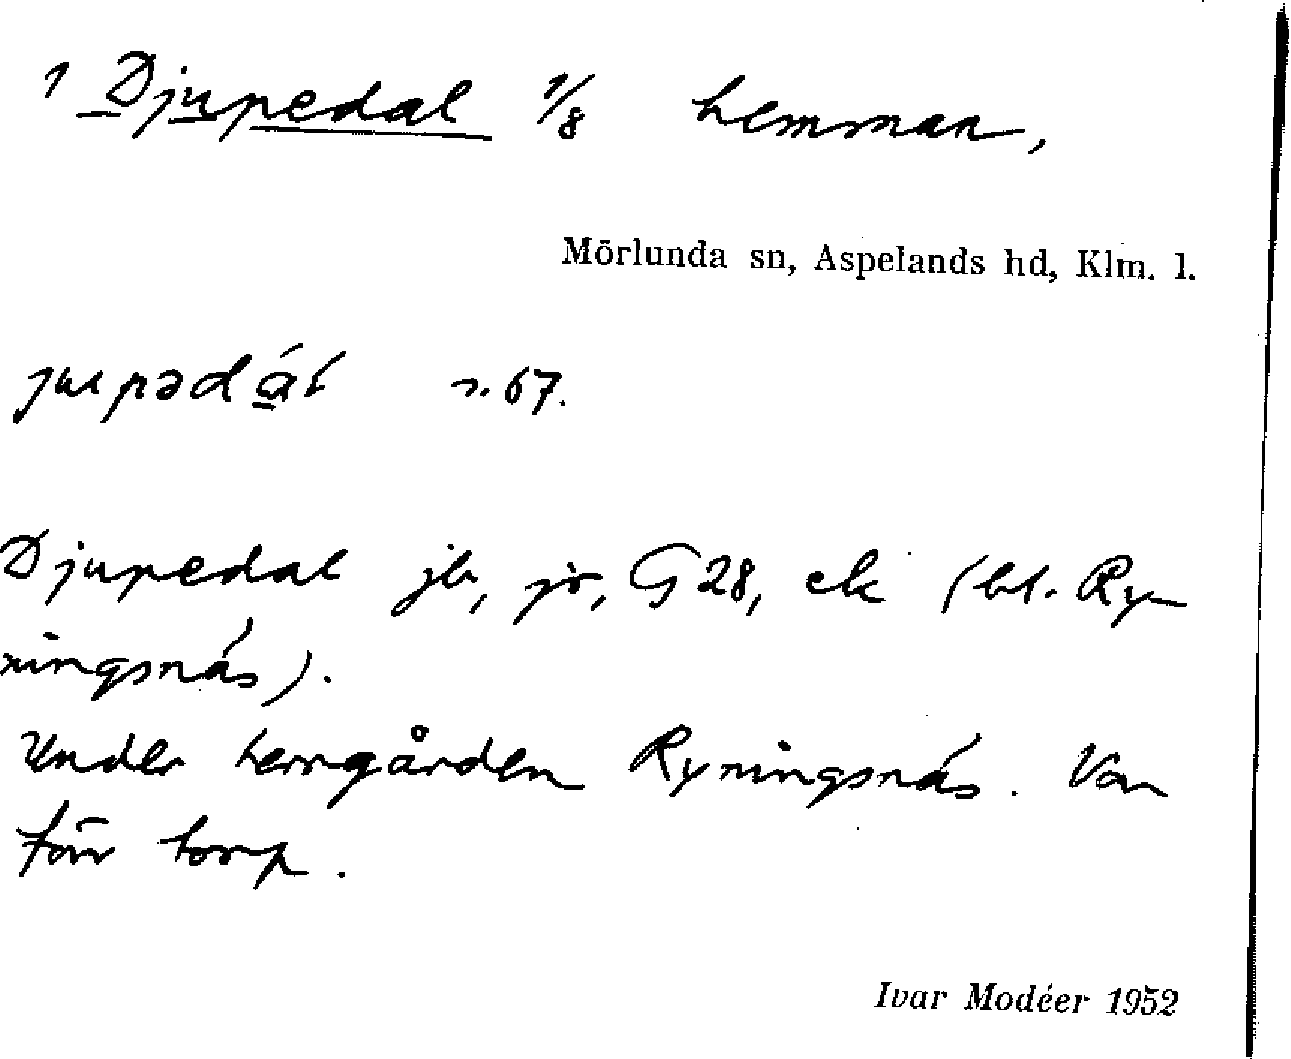 1 Djupedal 1/8 hemman,
Mörlunda sn, Aspelands hd, Klm. l.
jupədál n. 67.
Djupedal jb, jr, G 28, ek (bl. Ry-
ningsnäs).
Under herrgården Ryningsnäs. Var
förr torp.
Ivar Modéer 1952